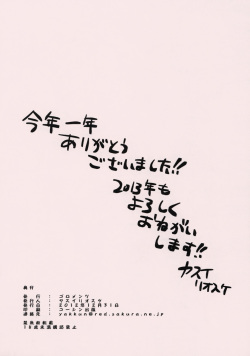 今年一年
ありがとう
ございました!!
2013年も
よろしく
おねがい
します!!
カスイ
リオスケ
奥付
発行：ゴロメンツ
発行人：ヤスイリオスケ
発行日：2012年12月31日
印刷：コーシン出版
連絡先：yakkun@red.sakura.ne.jp
無断転載禁
18歳未満購読禁止